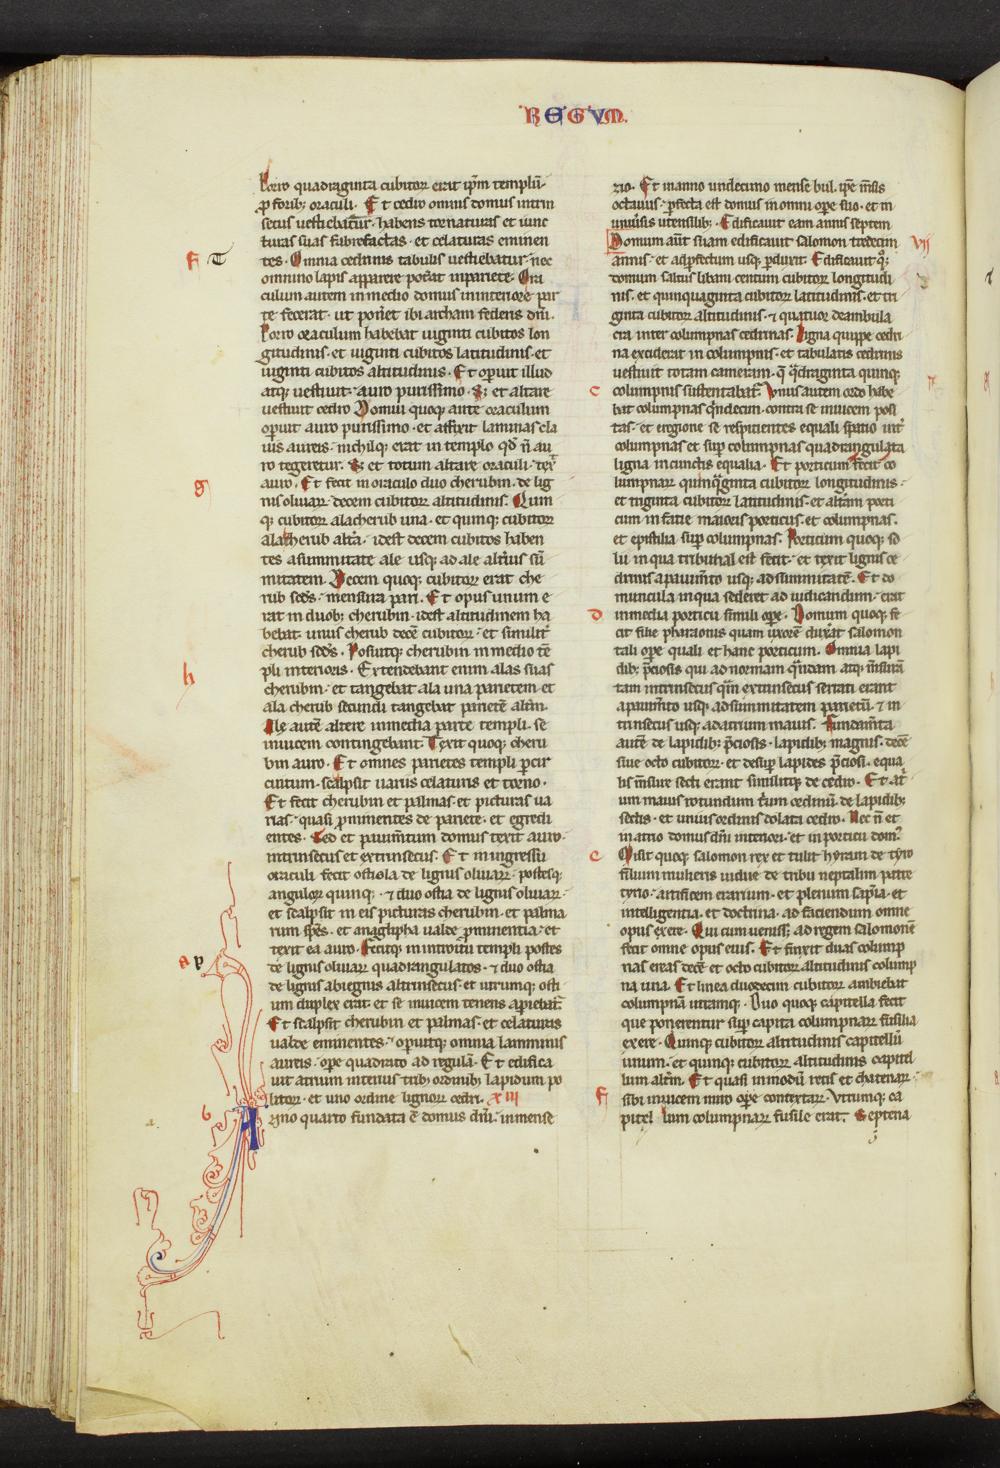 REGVM.
Porro quadraginta cubitoꝝ erat ip̄m templū·
ꝓ forib; oraculi. Et cedro omnis domus intrin
secus uestiebatur· habens tornaturas et iunc
turas suas fabrefactas· et celaturas eminen
tes· Omnia cedrinis tabulis uestiebatur· nec
omnino lapis apparere pot̄at in pariete. Ora
culum autem in medio domus in interiore par
te fecerat· ut poneret ibi archam federis dn̄i.
Porro oraculum habebat uiginti cubitos lon
gitudinis· et uiginti cubitos latitudinis· et
uiginti cubitos altitudinis· Et operuit illud
atq; uestiuit· auro purissimo· S; et altare
uestiuit cedro Domum quoq; ante oraculum
operuit auro purissimo· et affixit laminas cla
uis aureis· nichilq; erat in templo qd̄ n̄ au
ro tegeretur. S; et totum altare oraculi· texit
auro. Et fecit in oraculo duo cherubin· de lig
nis oliuaꝝ· decem cubitoꝝ altitudinis. Quin
q; cubitoꝝ ala cherub una· et quinq; cubitoꝝ
ala cherub alta· idest decem cubitos haben
tes a summitate ale usq; ad ale alterius sū
mitatem. Decem quoq; cubitoꝝ erat che
rub scds̄· mensura pari. Et opus unum e
rat in duob; cherubin· idest altitudinem ha
bebat· unus cherub decē cubitoꝝ· et similit̄
cherub scds̄. Posuitq; cherubin in medio tē
pli interioris· Extendebant enim alas suas
cherubin· et tangebat ala una parietem et
ala cherub secundi tangebat parietē altm̄.
Ale autē altere in media parte templi· se
inuicem contingebant. Texit quoq; cheru
bin auro. Et omnes parietes templi ꝑ cir
cuitum· scalpsit uariis celaturis et torno·
Et fecit cherubin et palmas· et picturas ua
rias· quasi prominentes de pariete· et egredi
entes. Sed et pauim̄tum domus texit auro·
intrinsecus et extrinsecus. Et in ingressu
oraculi fecit ostiola de lignis oliuaꝝ· postesq;
anguloꝝ quinq;· ⁊ duo ostia de lignis oliuaꝝ·
et scalpsit in eis picturas cherubin· et palma
rum sp̄es· et anaglipha ualde prominentia· et
texit ea auro. Fecitq; in introitu templi postes
de lignis oliuaꝝ quadrangulatos· ⁊ duo ostia
de lignis abiegnis altrinsecus· et utrumq; osti
um duplex erat· et se inuicem tenens aperiebat̄.
Et scalpsit cherubin et palmas· et celaturas
ualde eminentes· operuitq; omnia laminis
aureis· opere quadrato ad regulā· Et edifica
uit atrium interius trib; ordinib; lapidum po
litoꝝ· et uno ordine lignoꝝ cedri. XIII
Anno quarto fundata ē domus dn̄i· in mense
zio. Et in anno undecimo mense bul· ip̄e m̄sis
octauus· ꝑfecta est domus in omni oꝑe suo· et in
uniuersis utensilib;· Edificauit eam annis septem
Domum aut̄ suam edificauit salomon tredecim
annis· et ad ꝑfectum usq; ꝑduxit. Edificauit q;
domum saltus libani centum cubitoꝝ longitudi
nis· et quinquaginta cubitoꝝ latitudinis· et tri
ginta cubitoꝝ altitudinis· ⁊ quatuor deambula
cra inter columpnas cedrinas. Ligna quippe cedri
na exciderat in columpnas· et tabulatis cedrinis
uestiuit totam cameram· q̄ quadraginta quinq;
columpnis sustentabat̄. Unus autem ordo habe
bat columpnas quindecim· contra se inuicem posi
tas· et e regione se respicientes equali spatio int̄
columpnas et suꝑ columpnas quadrangulata
ligna in cunctis equalia· Et porticum fecit co
lumpnaꝝ quinquaginta cubitoꝝ longitudinis·
et triginta cubitoꝝ latitudinis· et altam porti
cum in facie maioris porticus· et columpnas·
et epistilia suꝑ columpnas. Porticum quoq; so
lii in qua tribunal est fecit· et texit lignis ce
drinis a pauim̄to usq; ad summitatē. Et do
muncula in qua sederet ad iudicandum· erat
in media porticu simili oꝑe. Domum quoq; fe
cit filie pharaonis quam uxorē duxat salomon
tali oꝑe quali et hanc porticum. Omnia lapi
dib; p̄ciosis qui ad normam quandam atq; m̄suram
tam intrinsecus quam extrinsecus serrati erant
a pauim̄to usq; ad summitatem parietū· ⁊ in
trinsecus usq; ad atrium maius. Fundam̄ta
autē de lapidib; p̄ciosis· lapidib; magnis· decē
siue octo cubitoꝝ· et desuꝑ lapides p̄ciosi· equa
lis m̄sure secti erant similitq; de cedro. Et at̄
um maius rotundum trium ordinū· de lapidib;
sectis· et unius ordinis dolata cedro· Nec n̄ et
in atrio domus dn̄i interiori· et in porticu dom̄.
Misit quoq; salomon rex et tulit hyram de tyro
filium mulieris uidue de tribu neptalim patre
tyrio· artificem erarium· et plenum sapīa· et
intelligentia· et doctrina· ad faciendum omne
opus ex ere. Qui cum uenisset ad regem salomonē
fecit omne opus eius. Et finxit duas colump
nas ereas decē et octo cubitoꝝ altitudinis colump
na una. Et linea duodecim cubitoꝝ ambiebat
columpnā utramq;. Duo quoq; capitella fecit
que ponerentur suꝑ capita columpnaꝝ fusilia
ex ere. Quinq; cubitoꝝ altitudinis capitellū
unum· et quinq; cubitoꝝ altitudinis capitel
lum altm̄. Et quasi in modū retis et chatenaꝝ·
sibi inuicem miro oꝑe contextaꝝ· Utrumq; ca
pitel lum columpnaꝝ fusile erat. Septena
f
g
h
VII
c
d
e
f